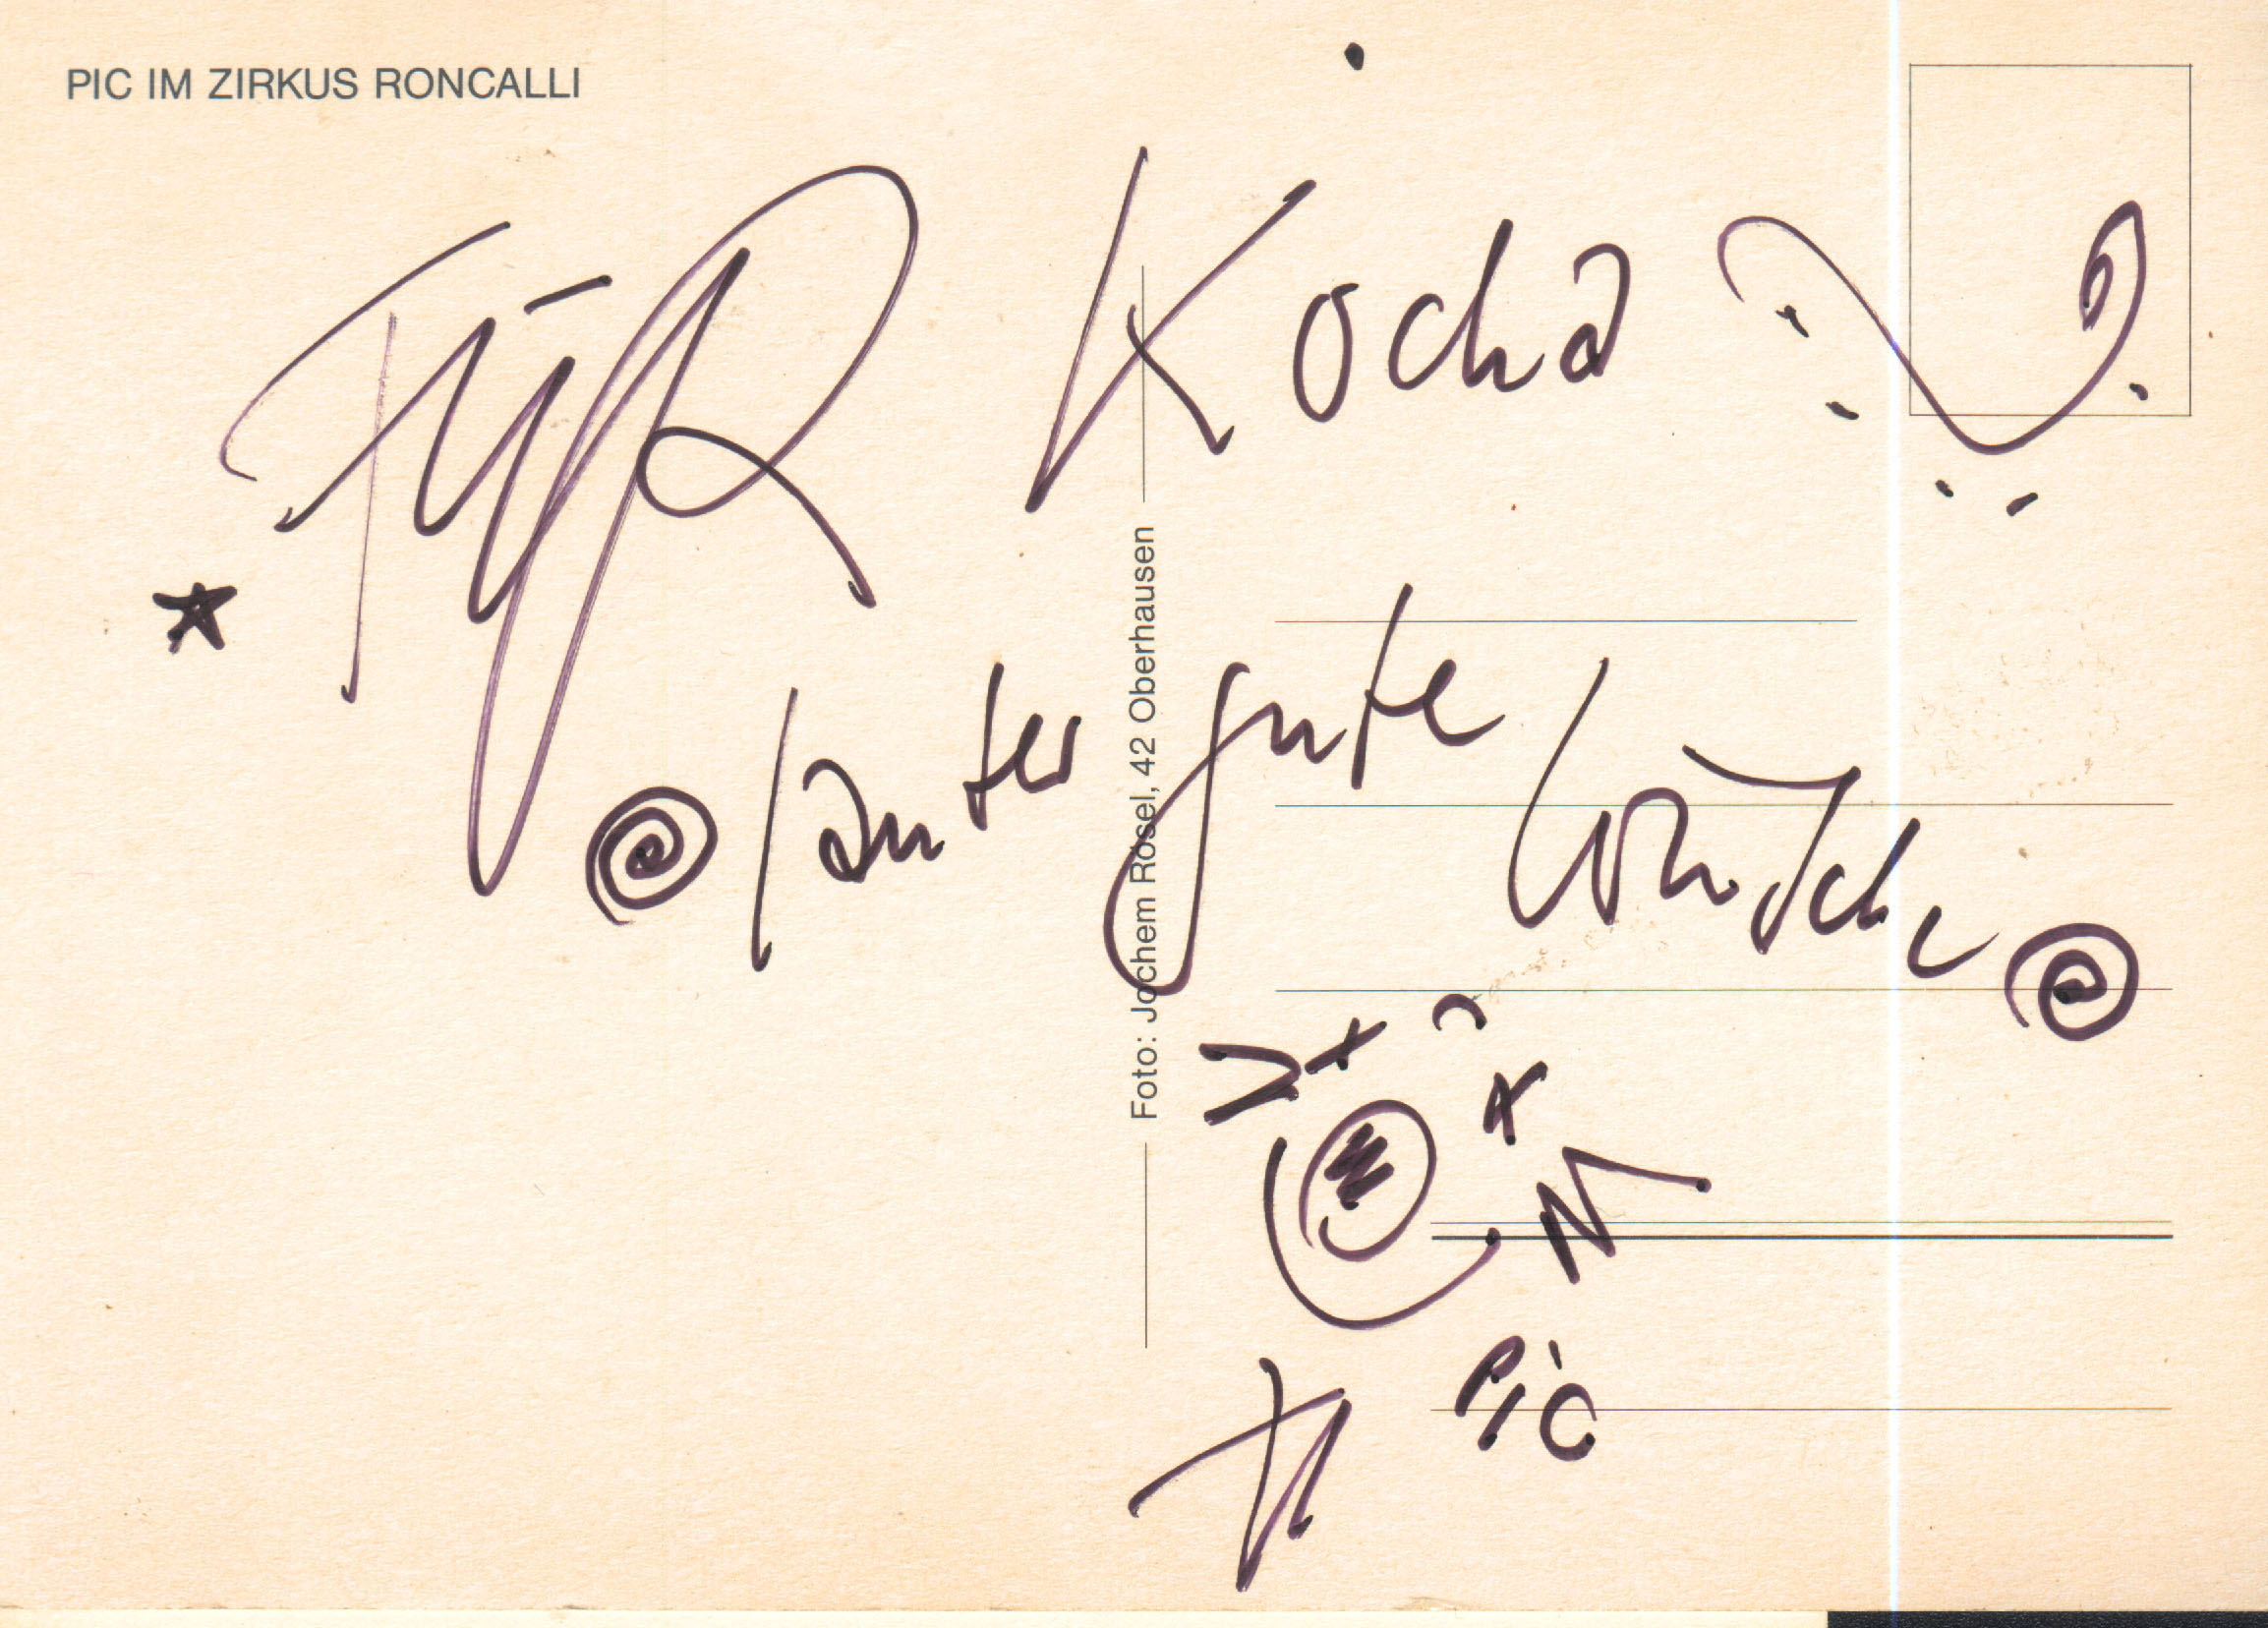 PIC IM ZIRKUS RONCALLI
FÜR Kocha
lauter gute Wünsche
Foto: Jochem Rösel, 42 Oberhausen
Pic